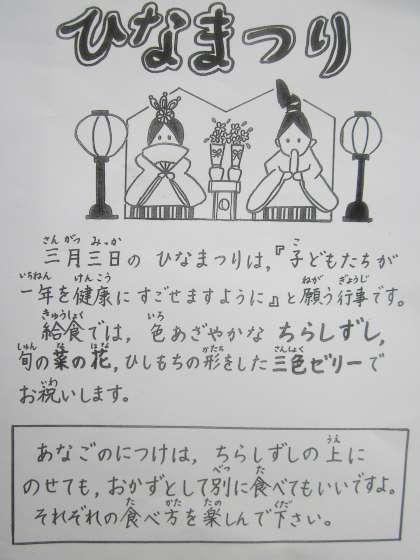 ひなまつり
三月三日の ひなまつりは,『子どもたちが
一年を健康にすごせますように』と願う行事です。
給食では, 色あざやかな ちらしずし,
旬の菜の花, ひしもちの形をした三色ゼリーで
お祝いします。
あなごのにつけは, ちらしずしの上に
のせても, おかずとして別に食べてもいいですよ。
それぞれの食べ方を楽しんで下さい。